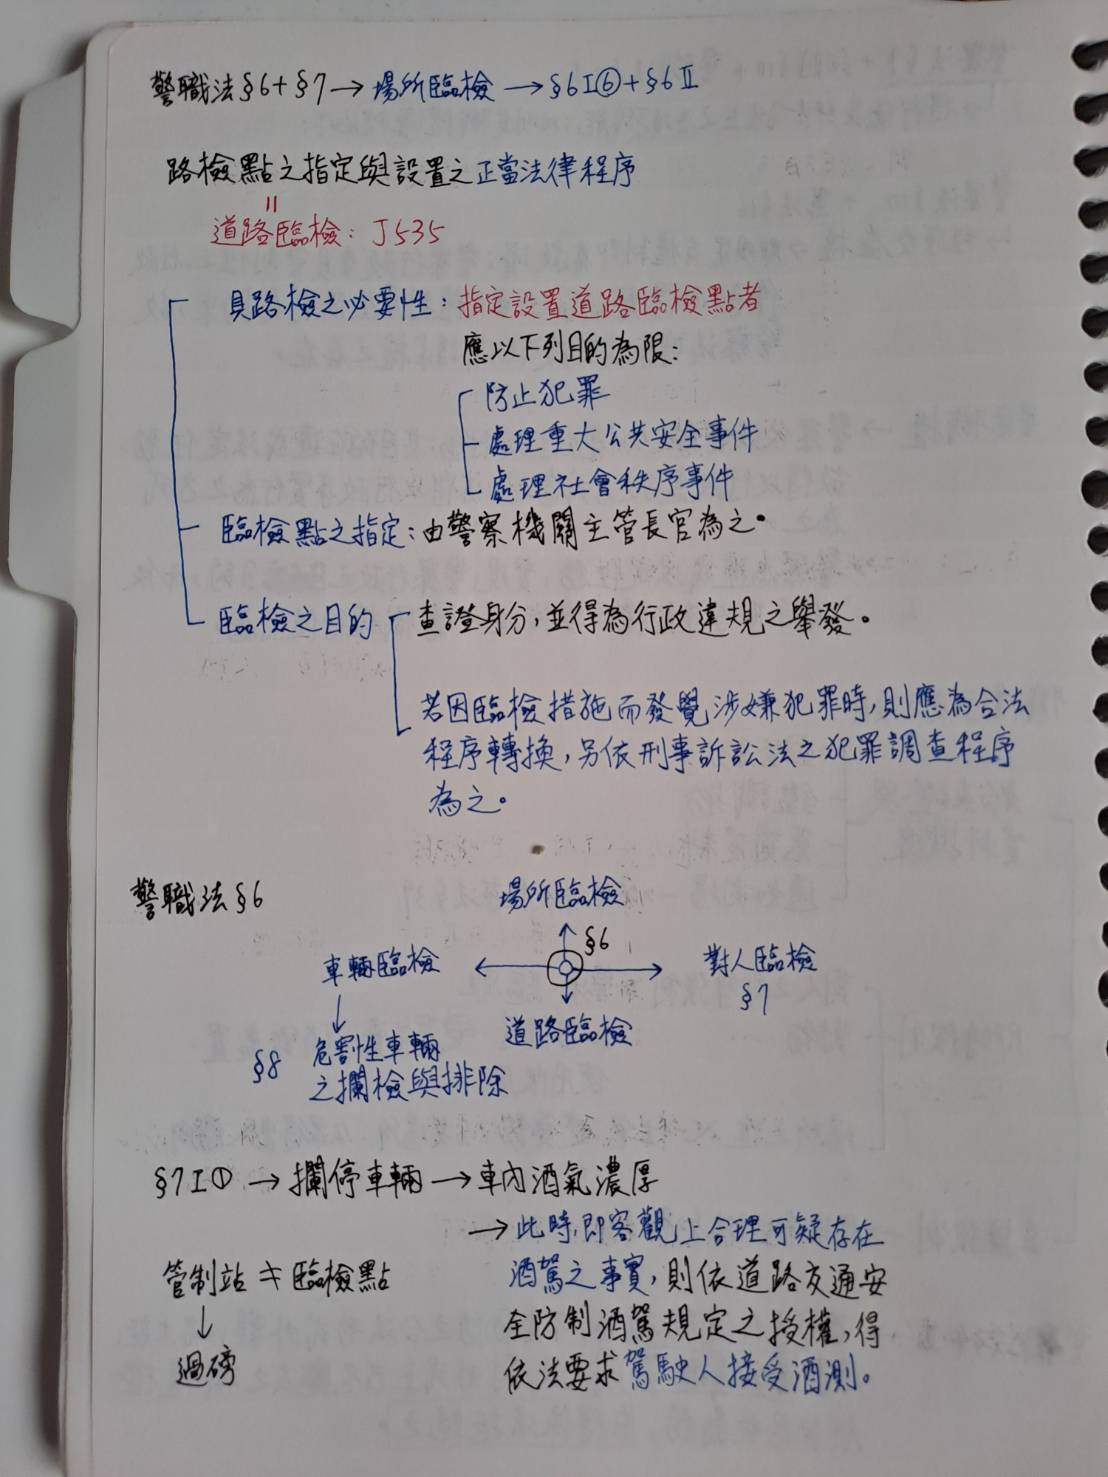 警職法§6+§7→場所臨檢→§6I⑥+§6Ⅱ
路檢點之指定與設置之正當法律程序
=
道路臨檢：J535
具路檢之必要性：指定設置道路臨檢點者
應以下列目的為限：
防止犯罪
處理重大公共安全事件
處理社會秩序事件
臨檢點之指定：由警察機關主管長官為之。
臨檢之目的 查證身分，並得為行政違規之舉發。
若因臨檢措施而發覺涉嫌犯罪時，則應為合法
程序轉換，另依刑事訴訟法之犯罪調查程序
為之。
警職法§6
場所臨檢
§6
車輛臨檢
對人臨檢
§7
道路臨檢
§8 危害性車輛
之攔檢與排除
§7I① →攔停車輛→車內酒氣濃厚
→此時，即客觀上合理可疑存在
酒駕之事實，則依道路交通安
全防制酒駕規定之授權，得
依法要求駕駛人接受酒測。
管制站≠臨檢點
↓
過磅